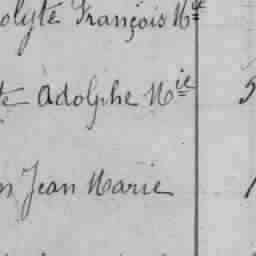 olyte François Mie
te Adolphe Mie
n Jean Marie